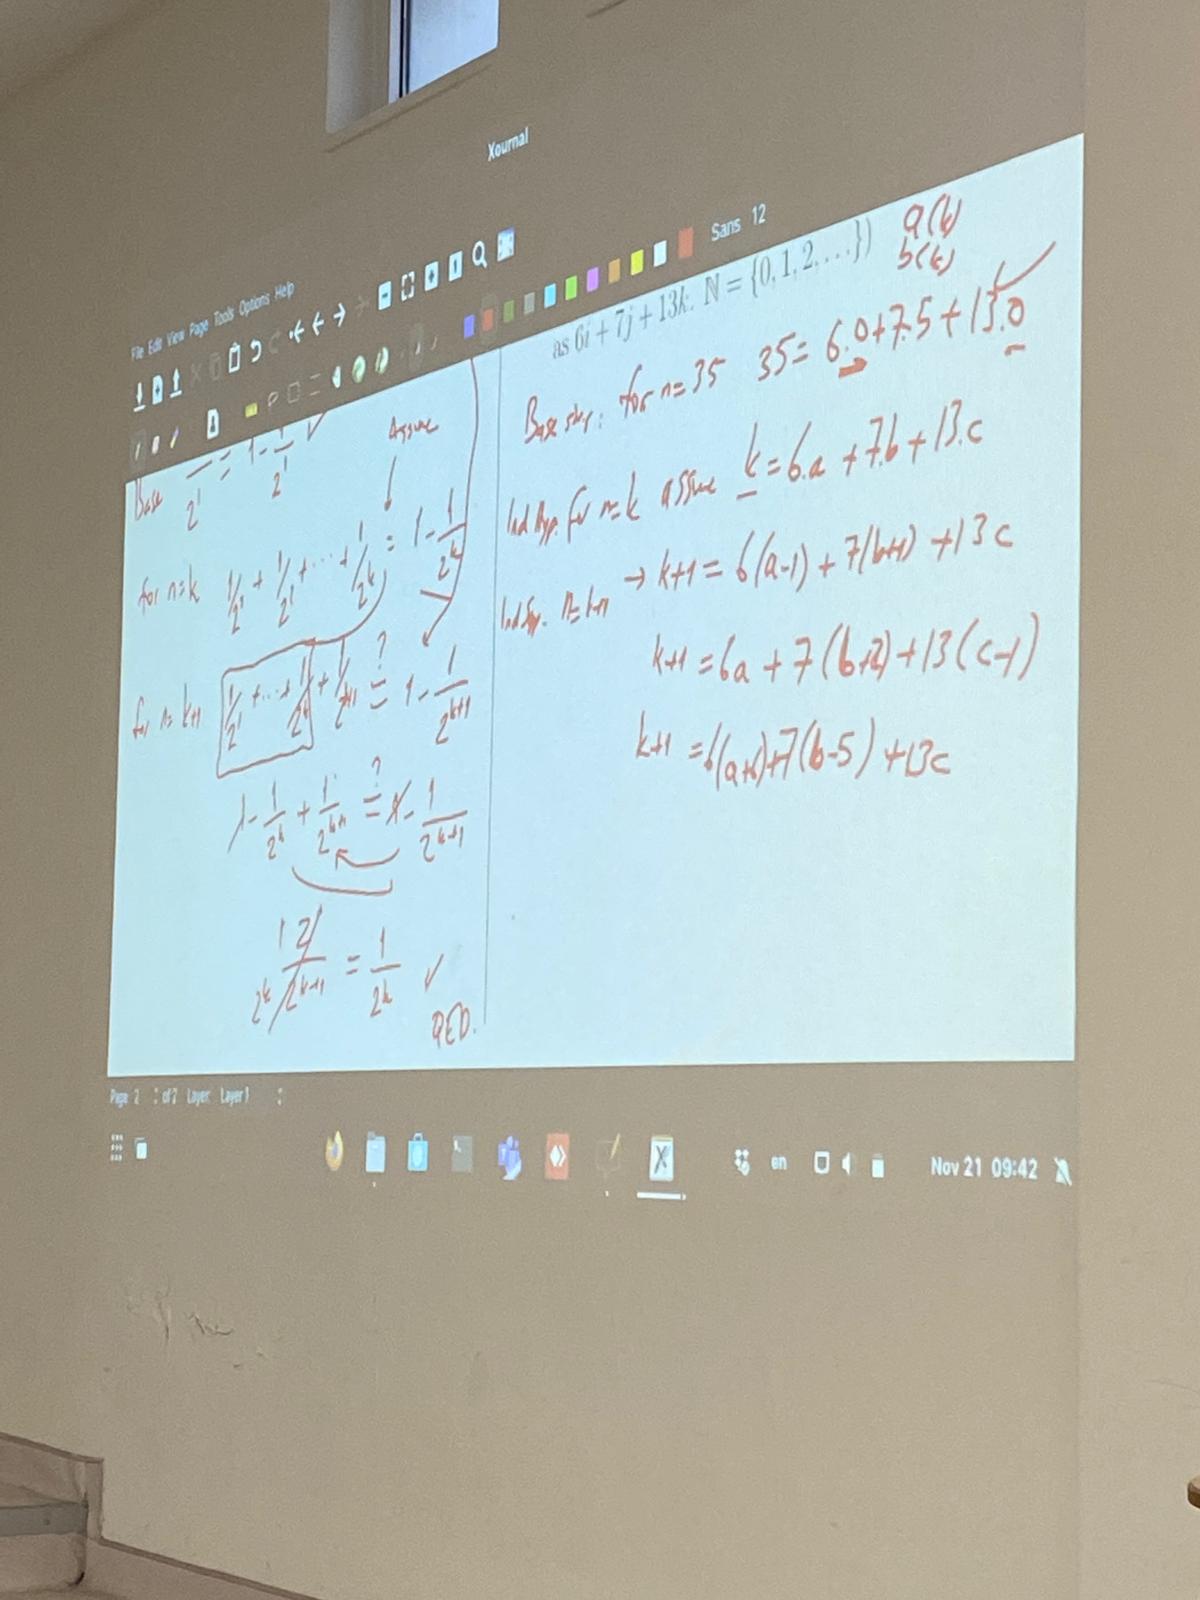 Xournal
File Edit View Page Tools Options Help
Sans 12
as 6i + 7j + 13k. ℕ = {0, 1, 2, ...})
a(k)
b(k)
Base 1/2^1 = 1 - 1/2^1 ✓
Assume
for n=k 1/2^1 + 1/2^1 + ... + 1/2^k = 1 - 1/2^k
for n=k+1 1/2^1 + ... + 1/2^k + 1/2^k+1 ?= 1 - 1/2^k+1
1 - 1/2^k + 1/2^k+1 ?= 1 - 1/2^k+1
1 2/2^k 2^k+1 = 1/2^k ✓
QED.
Base step: for n=35 35 = 6.0+7.5+13.0 ✓
Ind Hyp. for n=k assume k=6.a+7.b+13.c
n=k+1 → k+1 = 6(a-1) + 7(b+1) + 13c
k+1 = 6a + 7(b+2) + 13(c-1)
k+1 = 6(a+6)+7(b-5)+13c
Page 2 of 2 Layer Layer 1
en Nov 21 09:42